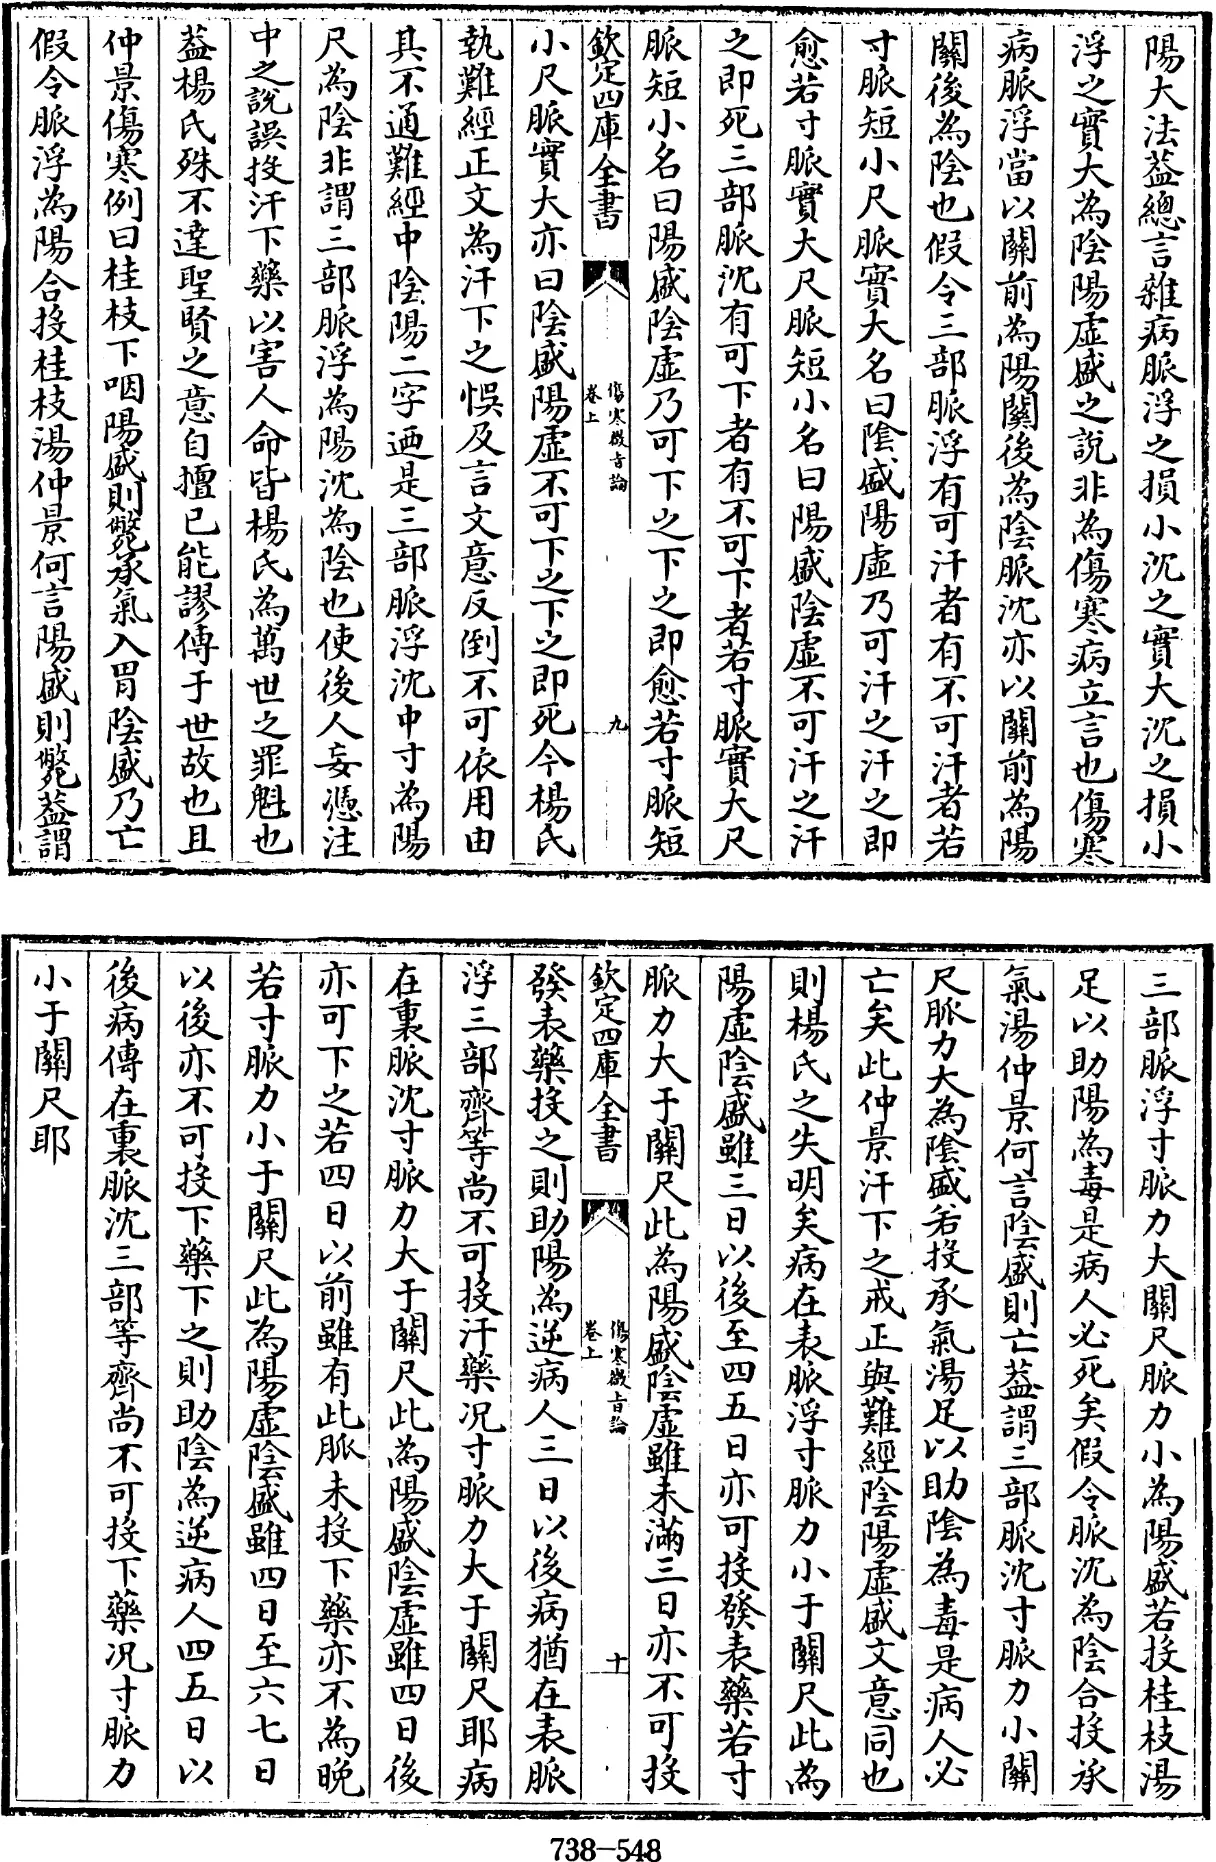 陽大法蓋總言雜病脈浮之損小沉之實大沉之損小
浮之實大為陰陽虛盛之說非為傷寒病立言也傷寒
病脈浮當以關前為陽關後為陰脈沈亦以關前為陽
關後為陰也假令三部脈浮有可汗者有不可汗者若
寸脈短小尺脈實大名曰陰盛陽虛乃可汗之汗之即
愈若寸脈實大尺脈短小名曰陽盛陰虛不可汗之汗
之即死三部脈沉有可下者有不可下者若寸脈實大尺
脈短小名曰陽盛陰虛乃可下之下之即愈若寸脈短
欽定四庫全書 傷寒微旨論 卷上 九
小尺脈實大亦曰陰盛陽虛不可下之下之即死今楊氏
執難經正文為汗下之悞及言文意反倒不可依用由
其不通難經中陰陽二字迺是三部脈浮沈中寸為陽
尺為陰非謂三部脈浮為陽沈為陰也使後人妄憑注
中之說誤投汗下藥以害人命皆楊氏為萬世之罪魁也
蓋楊氏殊不達聖賢之意自擅已能謬傳于世故也且
仲景傷寒例曰桂枝下咽陽盛則斃承氣入胃陰盛乃亡
假令脈浮為陽合投桂枝湯仲景何言陽盛則斃蓋謂
三部脈浮寸脈力大關尺脈力小為陽盛若投桂枝湯
足以助陽為毒是病人必死矣假令脈沈為陰合投承
氣湯仲景何言陰盛則亡蓋謂三部脈沈寸脈力小關
尺脈力大為陰盛若投承氣湯足以助陰為毒是病人必
亡矣此仲景汗下之戒正與難經陰陽虛盛文意同也
則楊氏之失明矣病在表脈浮寸脈力小于關尺此為
陽虛陰盛雖三日以後至四五日亦可投發表藥若寸
脈力大于關尺此為陽盛陰虛雖未滿三日亦不可投
欽定四庫全書 傷寒微旨論 卷上 十
發表藥投之則助陽為逆病人三日以後病猶在表脈
浮三部齊等尚不可投汗藥况寸脈力大于關尺耶病
在裏脈沈寸脈力大于關尺此為陽盛陰虛雖四日後
亦可下之若四日以前雖有此脈未投下藥亦不為晚
若寸脈力小于關尺此為陽虛陰盛雖四日至六七日
以後亦不可投下藥下之則助陰為逆病人四五日以
後病傳在裏脈沈三部等齊尚不可投下藥况寸脈力
小于關尺耶
738-548